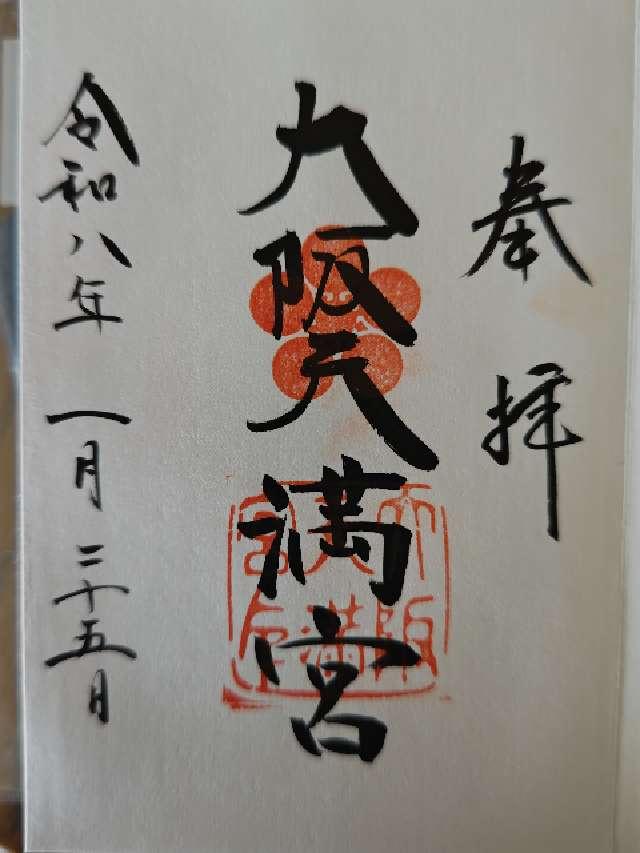 奉拝
大阪天満宮
令和八年 一月 二十五日